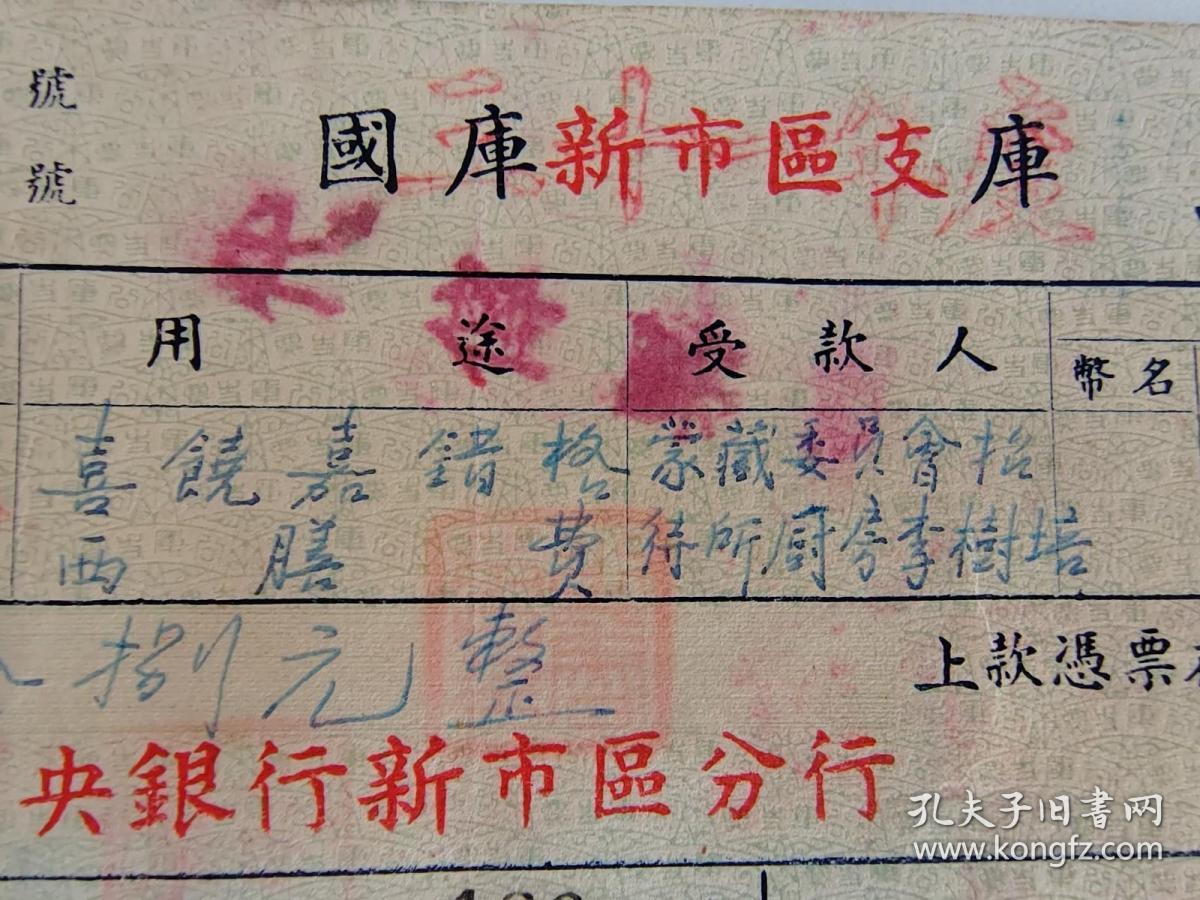 號
號
國庫新市區支庫
用途
受款人
幣名
喜饒嘉錯格
西膳費
蒙藏委員會招
待所厨房李樹培
捌元整
上款憑票
央銀行新市區分行
孔夫子旧书网
www.kongfz.com